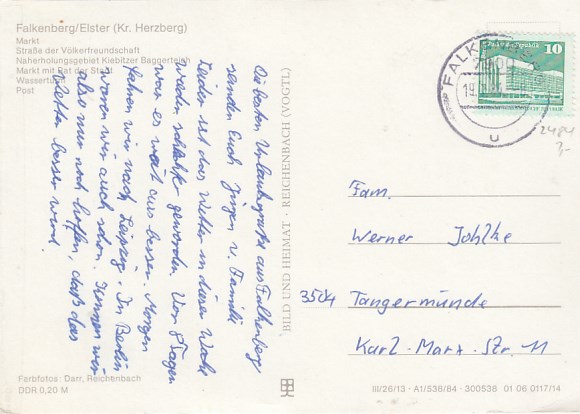 Falkenberg/Elster (Kr. Herzberg)
Markt
Straße der Völkerfreundschaft
Naherholungsgebiet Kiebitzer Baggerteich
Markt mit Rat der Stadt
Wasserturm
Post
Die besten Urlaubsgrüße aus Falkenberg
senden Euch Jürgen u. Familie
Leider ist das Wetter in dieser Woche
wieder schlecht geworden. Vor 8 Tagen
war es weit aus besser. Morgen
fahren wir nach Leipzig. In Berlin
waren wir auch schon. Können wir
also nur noch hoffen, daß das
Wetter besser wird.
BILD UND HEIMAT · REICHENBACH (VOGTL)
FALKENBERG
7900
19.
u
10
DDR
2484
Fam.
Werner Johlke
3504 Tangermünde
Karl-Marx-Str. 11
Farbfotos: Darr, Reichenbach
DDR 0,20 M
III/26/13 · A1/538/84 · 300538 01 06 0117/14